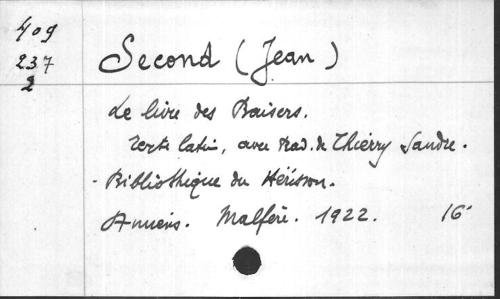 409
237
2
Second (Jean)
Le livre des Baisers.
Texte latin, avec trad. de Thierry Sandre.
- Bibliothèque du Hérisson.
Amiens. Malfère. 1922. 16°